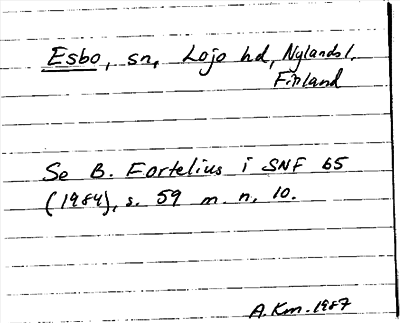 Esbo, sn, Lojo hd, Nylands l.
Finland
Se B. Fortelius i SNF 65
(1984), s. 59 m. n. 10.
A.Km. 1987